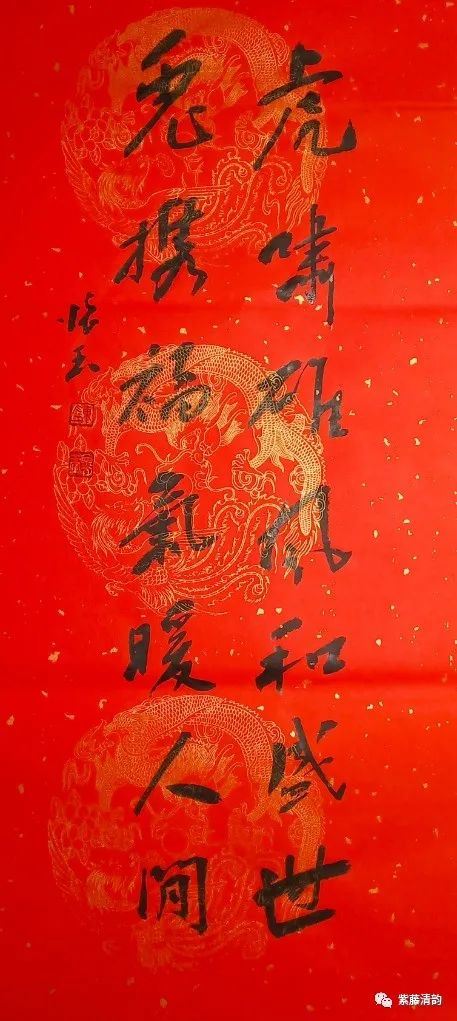 虎啸雄风和盛世
兔携福氣暖人間
懷玉
紫藤清韵